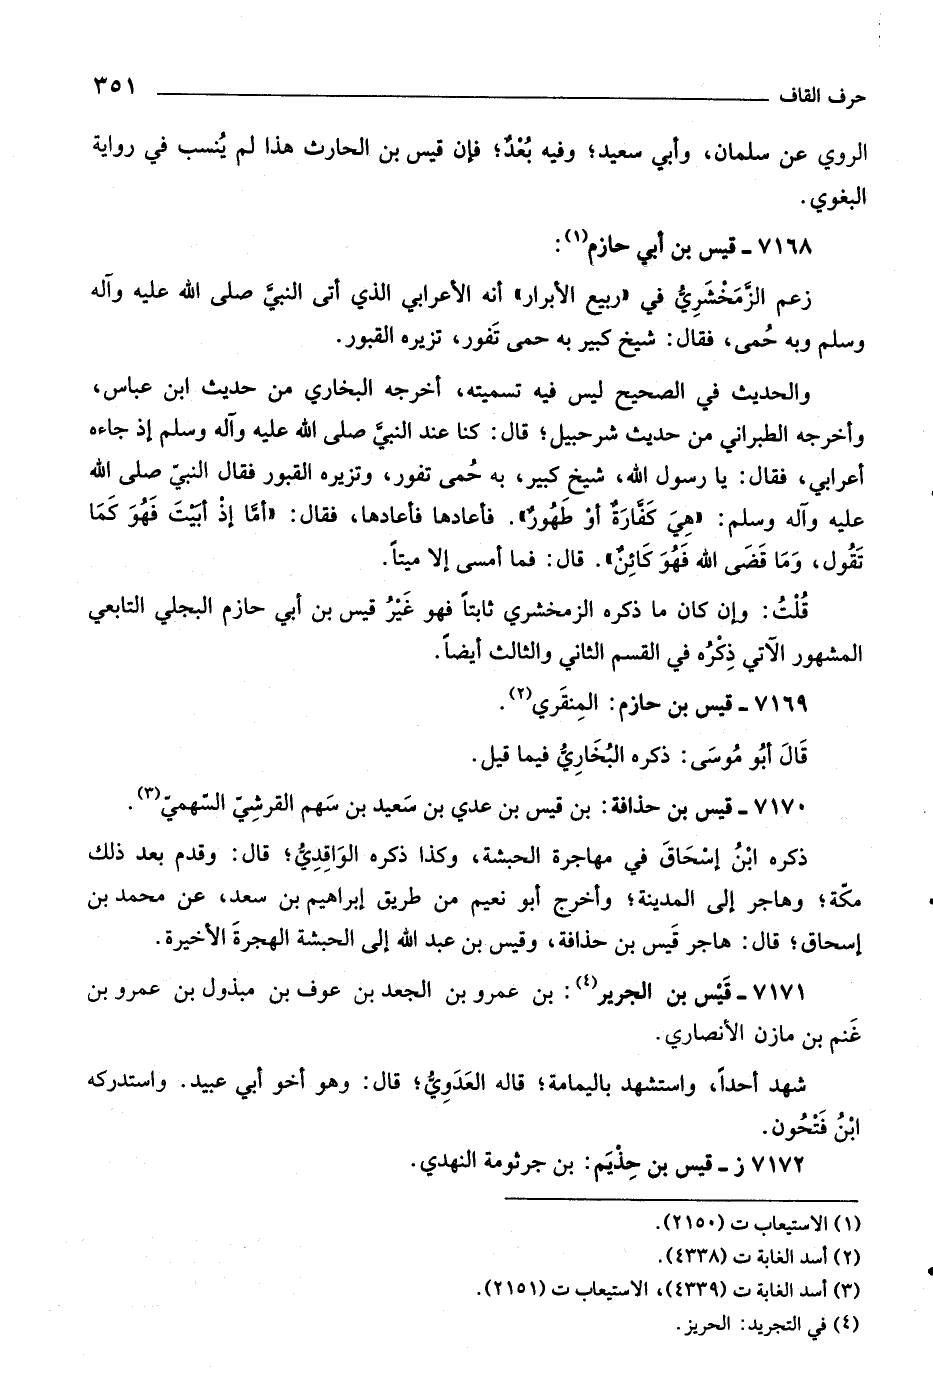 حرف القاف ٣٥١
الروي عن سلمان، وأبي سعيد؛ وفيه بُعْدٌ؛ فإن قيس بن الحارث هذا لم يُنسب في رواية
البغوي.
٧١٦٨ ـ قيس بن أبي حازم(١):
زعم الزَّمَخْشَرِيُّ في «ربيع الأبرار» أنه الأعرابي الذي أتى النبيَّ صلى الله عليه وآله
وسلم وبه حُمى، فقال: شيخ كبير به حمى تَفور، تزيره القبور.
والحديث في الصحيح ليس فيه تسميته، أخرجه البخاري من حديث ابن عباس،
وأخرجه الطبراني من حديث شرحبيل؛ قال: كنا عند النبيَّ صلى الله عليه وآله وسلم إذ جاءه
أعرابي، فقال: يا رسول الله، شيخ كبير، به حُمى تفور، وتزيره القبور فقال النبيّ صلى الله
عليه وآله وسلم: «هِيَ كَفَّارَةٌ أوْ طَهُورٌ». فأعادها فأعادها، فقال: «أمَّا إذْ أبَيْتَ فَهُوَ كَمَا
تَقُول، وَمَا قَضَى الله فَهُوَ كَائِنٌ». قال: فما أمسى إلا ميتاً.
قُلْتُ: وإن كان ما ذكره الزمخشري ثابتاً فهو غَيْرُ قيس بن أبي حازم البجلي التابعي
المشهور الآتي ذِكْرُه في القسم الثاني والثالث أيضاً.
٧١٦٩ ـ قيس بن حازم: المِنقَري(٢).
قَالَ أبُو مُوسَى: ذكره البُخَارِيُّ فيما قيل.
٧١٧٠ ـ قيس بن حذافة: بن قيس بن عدي بن سَعيد بن سَهم القرشِيّ السّهميّ(٣).
ذكره ابْنُ إسْحَاقَ في مهاجرة الحبشة، وكذا ذكره الوَاقِدِيُّ؛ قال: وقدم بعد ذلك
مكّة؛ وهاجر إلى المدينة؛ وأخرج أبو نعيم من طريق إبراهيم بن سعد، عن محمد بن
إسحاق؛ قال: هاجر قَيس بن حذافة، وقيس بن عبد الله إلى الحبشة الهجرةَ الأخيرة.
٧١٧١ ـ قَيْس بن الجرير(٤): بن عمرو بن الجعد بن عوف بن مبذول بن عمرو بن
غَنم بن مازن الأنصاري.
شهد أحداً، واستشهد باليمامة؛ قاله العَدَوِيُّ؛ قال: وهو أخو أبي عبيد. واستدركه
ابْنُ فَتْحُون.
٧١٧٢ ز ـ قيس بن حِذْيَم: بن جرثومة النهدي.
(١) الاستيعاب ت (٢١٥٠).
(٢) أسد الغابة ت (٤٣٣٨).
(٣) أسد الغابة ت (٤٣٣٩)، الاستيعاب ت (٢١٥١).
(٤) في التجريد: الحريز.